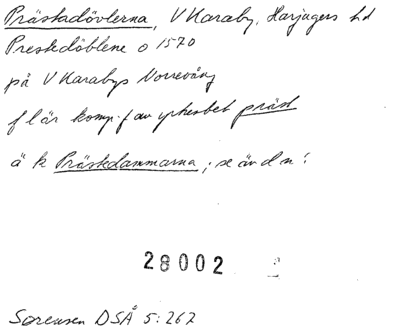 Prästadövlerna, V Karaby, Harjagers hd
Prestedöblene o 1570
på V Karabys Norrevång
f l är komp. f av yrkesbet präst
ä k Prästedammarna; se även d n!
28002
Sorensen DSÅ 5:267